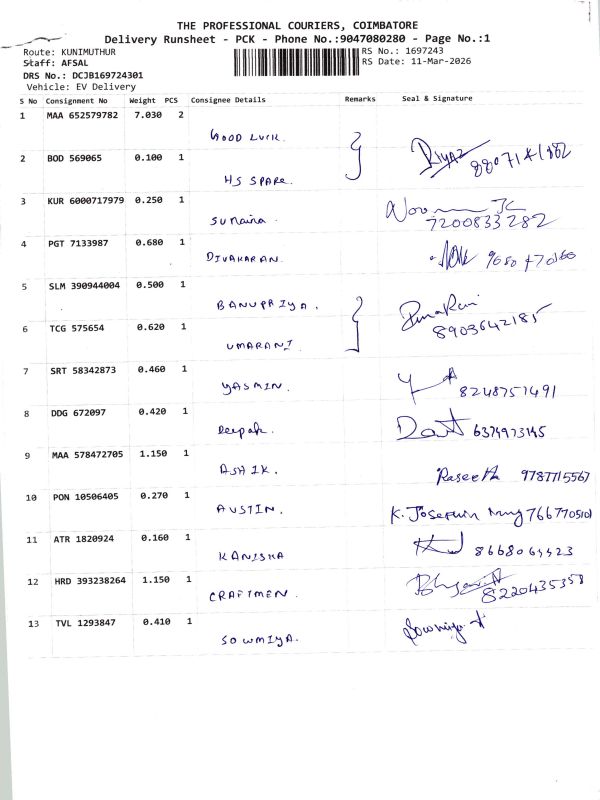 THE PROFESSIONAL COURIERS, COIMBATORE
Delivery Runsheet - PCK - Phone No.:9047080280 - Page No.:1
Route: KUNIMUTHUR RS No.: 1697243
Staff: AFSAL RS Date: 11-Mar-2026
DRS No.: DCJB169724301
Vehicle: EV Delivery
S No Consignment No Weight PCS Consignee Details Remarks Seal & Signature
1 MAA 652579782 7.030 2
GOOD LUCK.
2 BOD 569065 0.100 1
HS SPARE.
RIYAZ
3 KUR 6000717979 0.250 1
SUMAINA.
7200833282
4 PGT 7133987 0.680 1
DIVAKARAN.
5 SLM 390944004 0.500 1
BANUPRIYA.
8903642185
6 TCG 575654 0.620 1
UMARANI.
7 SRT 58342873 0.460 1
YASMIN.
8248757491
8 DDG 672097 0.420 1
Deepak.
6374973145
9 MAA 578472705 1.150 1
ASHIK.
9787715567
10 PON 10506405 0.270 1
AUSTIN.
K. Josephin
11 ATR 1820924 0.160 1
KANISHA
12 HRD 393238264 1.150 1
CRAFTMEN.
8220435358
13 TVL 1293847 0.410 1
SOWMIYA.
Sowmiya